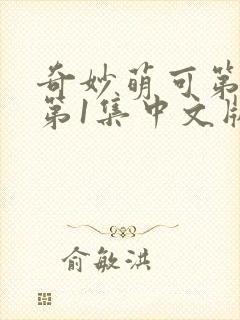 奇妙萌可第
第1集中文版
俞敏洪